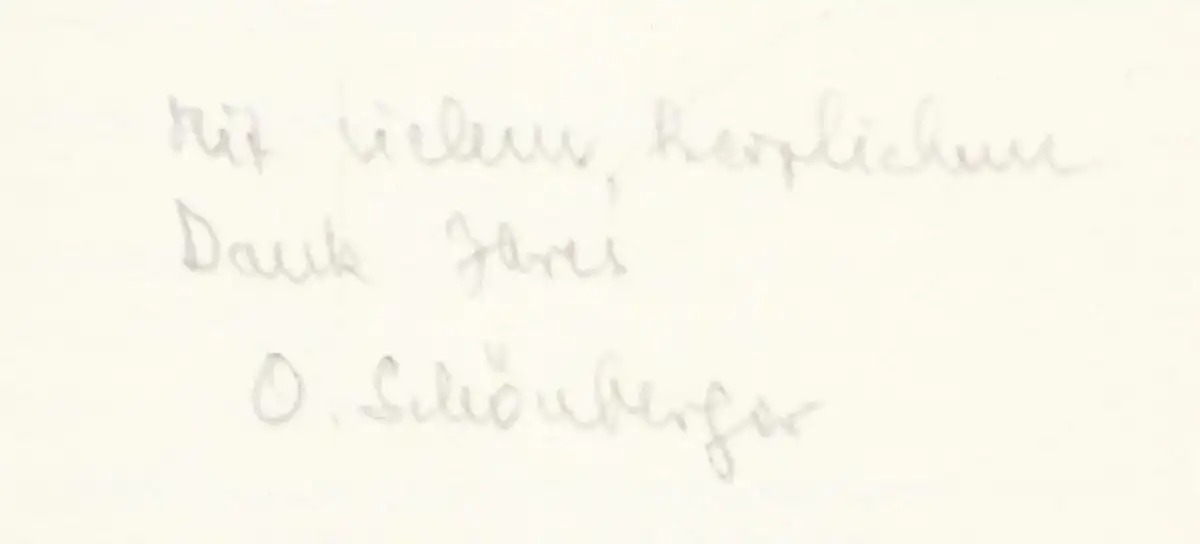 Mit vielem, herzlichem
Dank Ihres
O. Schönberger